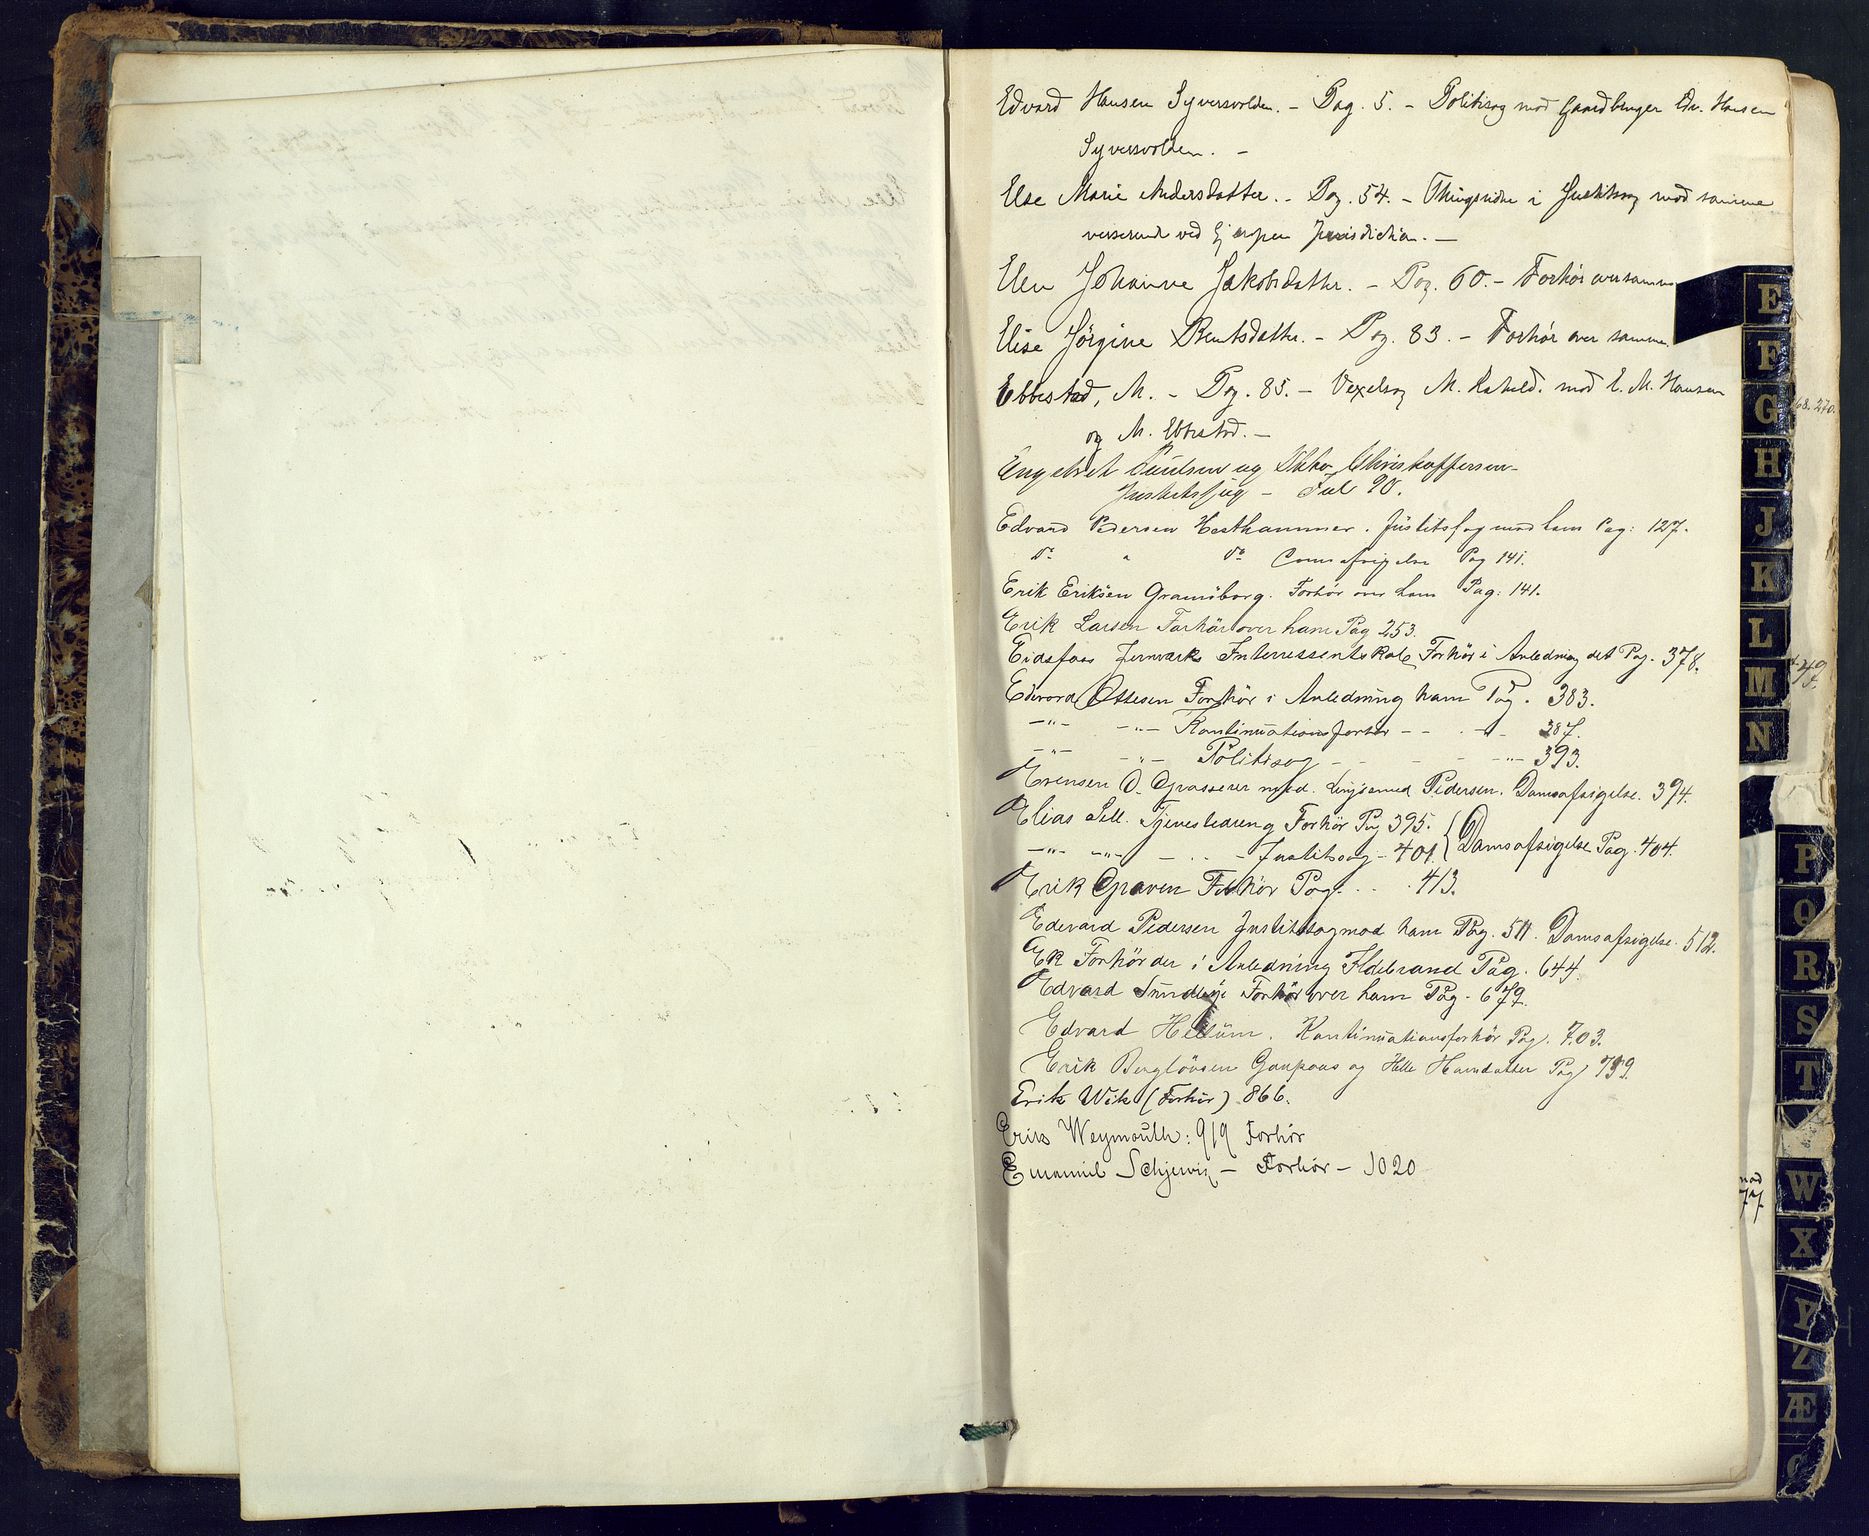 Edvard Hansen Syversvolden. – Pag. 5. – Politisag mod Gaardbruger Edv. Hansen
Syversvolden. –
Else Marie Andersdatter. – Pag. 54. – Thingsvidne i Justitssag mod samme
verserende ved Ejerspen Jurisdiction. –
Elen Johanne Jakobsdatter. – Pag. 60. – Forhør over samme
Elise Jørgine Berntsdatter. – Pag. 83. – Forhør over samme.
Ebbestad, M. – Pag. 85. – Vexelsag M. mod E. M. Hansen
og M. Ebbestad. –
Engebret Paulsen og Christoffersen –
Justitssag – Fol 90.
Edvard Pedersen Hesthammer. Justitssag mod ham Pag: 127.
do " do Domsafsigelse Pag 141.
Erik Eriksen Gramsborg. Forhør over ham Pag: 141.
Erik Larsen Forhör over ham Pag 253.
Eidsfoss Jernværks Interressentskab Forhör i Anledning det Pag. 378.
Edvard Ottesen Forhör i Anledning ham Pag. 383.
–"– –"– Kontinuationsforhör – – . –"– 387.
–"– –"– Politisag – – – –"– 393.
Evensen O. Grosserer mod. Lingsmed Pedersen. Domsafsigelse. 394.
Elias Sell. Tjenestedreng Forhör Pag 395. { Domsafsigelse Pag. 404.
–"– –"– – . . – Justitssag – 401.
Erik Graven Forhör Pag. . . . 413.
Edevard Pedersen Justitssag mod ham Pag. 511. Domsafsigelse. 512.
Ek Forhör der i Anledning Ildebrand Pag. 644.
Edvard Forhör over ham Pag. 679.
Edvard Hellum. Kontinuationsforhör Pag. 703.
Erik Gaupaas og Helle Hansdatter Pag 739.
Erik Wik (Forhör) 866.
Eriks Weymouth: 919 Forhör
Emanuel Schjerviz – Forhör – 1020
E
F
G
H
J
K
L
M
N
P
Q
R
S
T
W
X
Y
Z
Æ
68. 270.
mod
77.